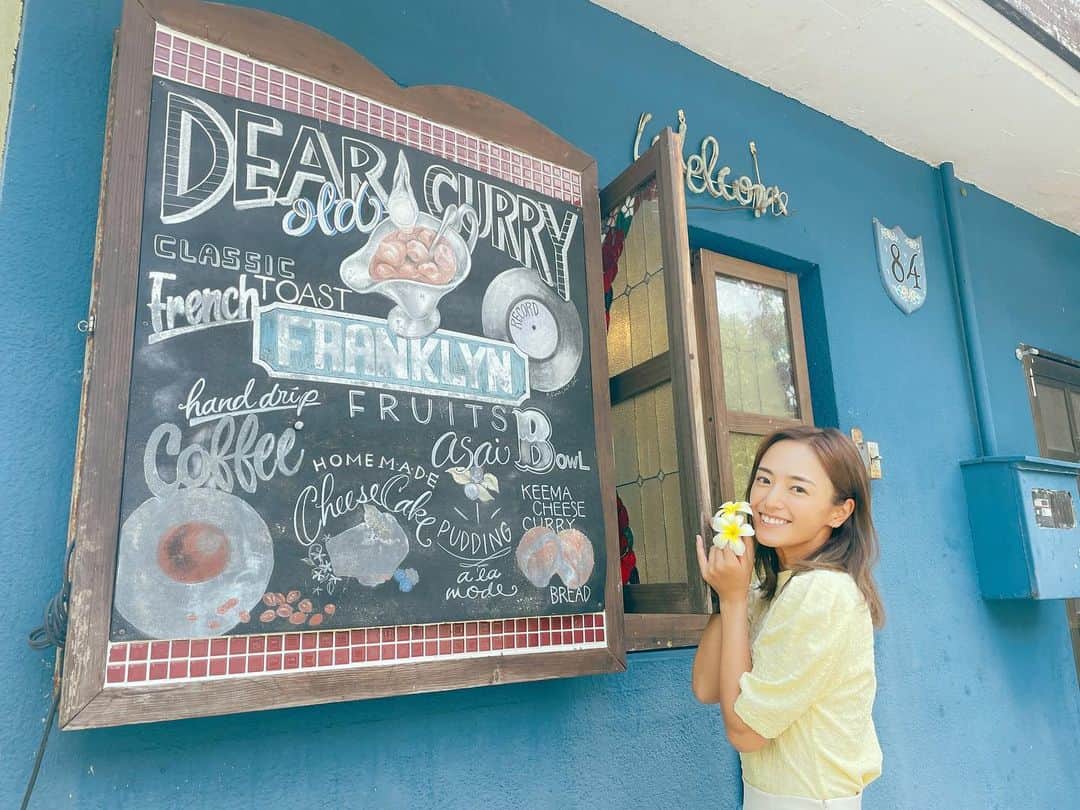 DEAR
old
CURRY
CLASSIC
French TOAST
FRANKLYN
RECORD
FRUITS
hand drip
Coffee
HOMEMADE
CheeseCake
asai Bowl
PUDDING
a la
mode
KEEMA
CHEESE
CURRY
BREAD
Welcome
84